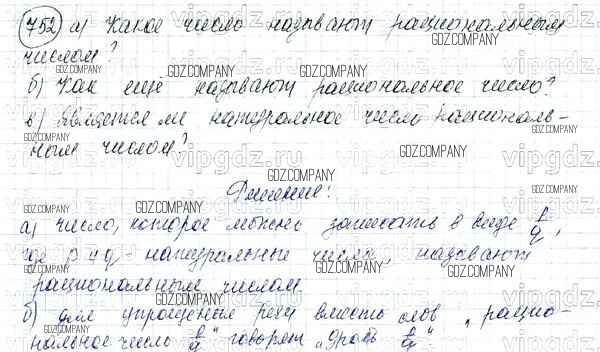 752 а) Какое число называют рациональным
числом?
б) Как ещё называют рациональное число?
в) Является ли натуральное число рациональ-
ным числом?
Решение:
а) число, которое можно записать в виде p/q,
где p и q - натуральные числа, называют
рациональным числом
б) для упрощения речи вместо слов „рацио-
нальное число p/q" говорят „дробь p/q"